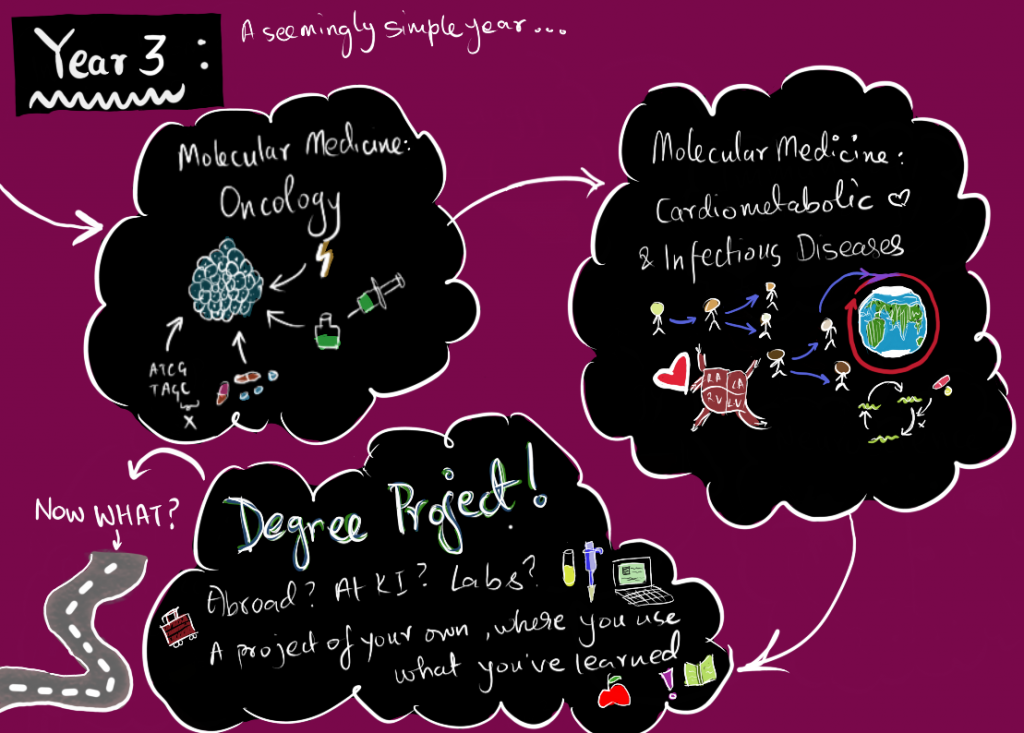 Year 3 :
A seemingly simple year...
Molecular Medicine:
Oncology
ATCG
TAGC
X
Molecular Medicine:
Cardiometabolic ♡
& Infectious Diseases
RA LA
RV LV
x
Degree Project!
Abroad? At KI? Labs?
A project of your own, where you use
what you've learned
!
NOW WHAT?